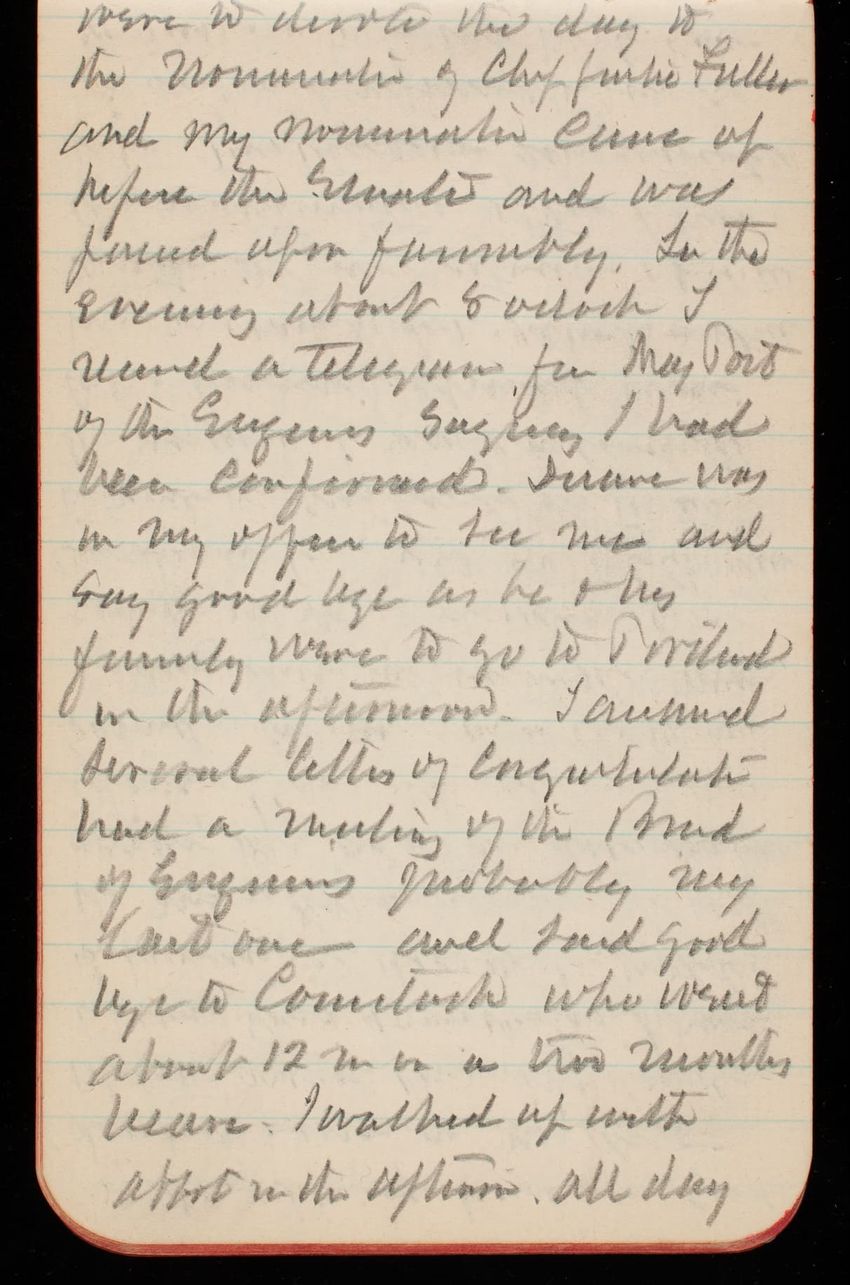 were to devote the day to
the Nomination of Chf Justice Fuller
and my nomination came up
before the Senate and was
passed upon favorably. In the
evening about 8 oclock I
received a telegram from Maj Post
of the Engineers saying I had
been confirmed. Duane was
in my office to see me and
say good bye as he & his
family were to go to Portland
in the afternoon. I answered
several letters of congratulation
had a meeting of the Board
of Engineers probably my
last one and said good
bye to Comstock who went
about 12 m on a two months
leave. I walked up with
Abbot in the afternoon. All day